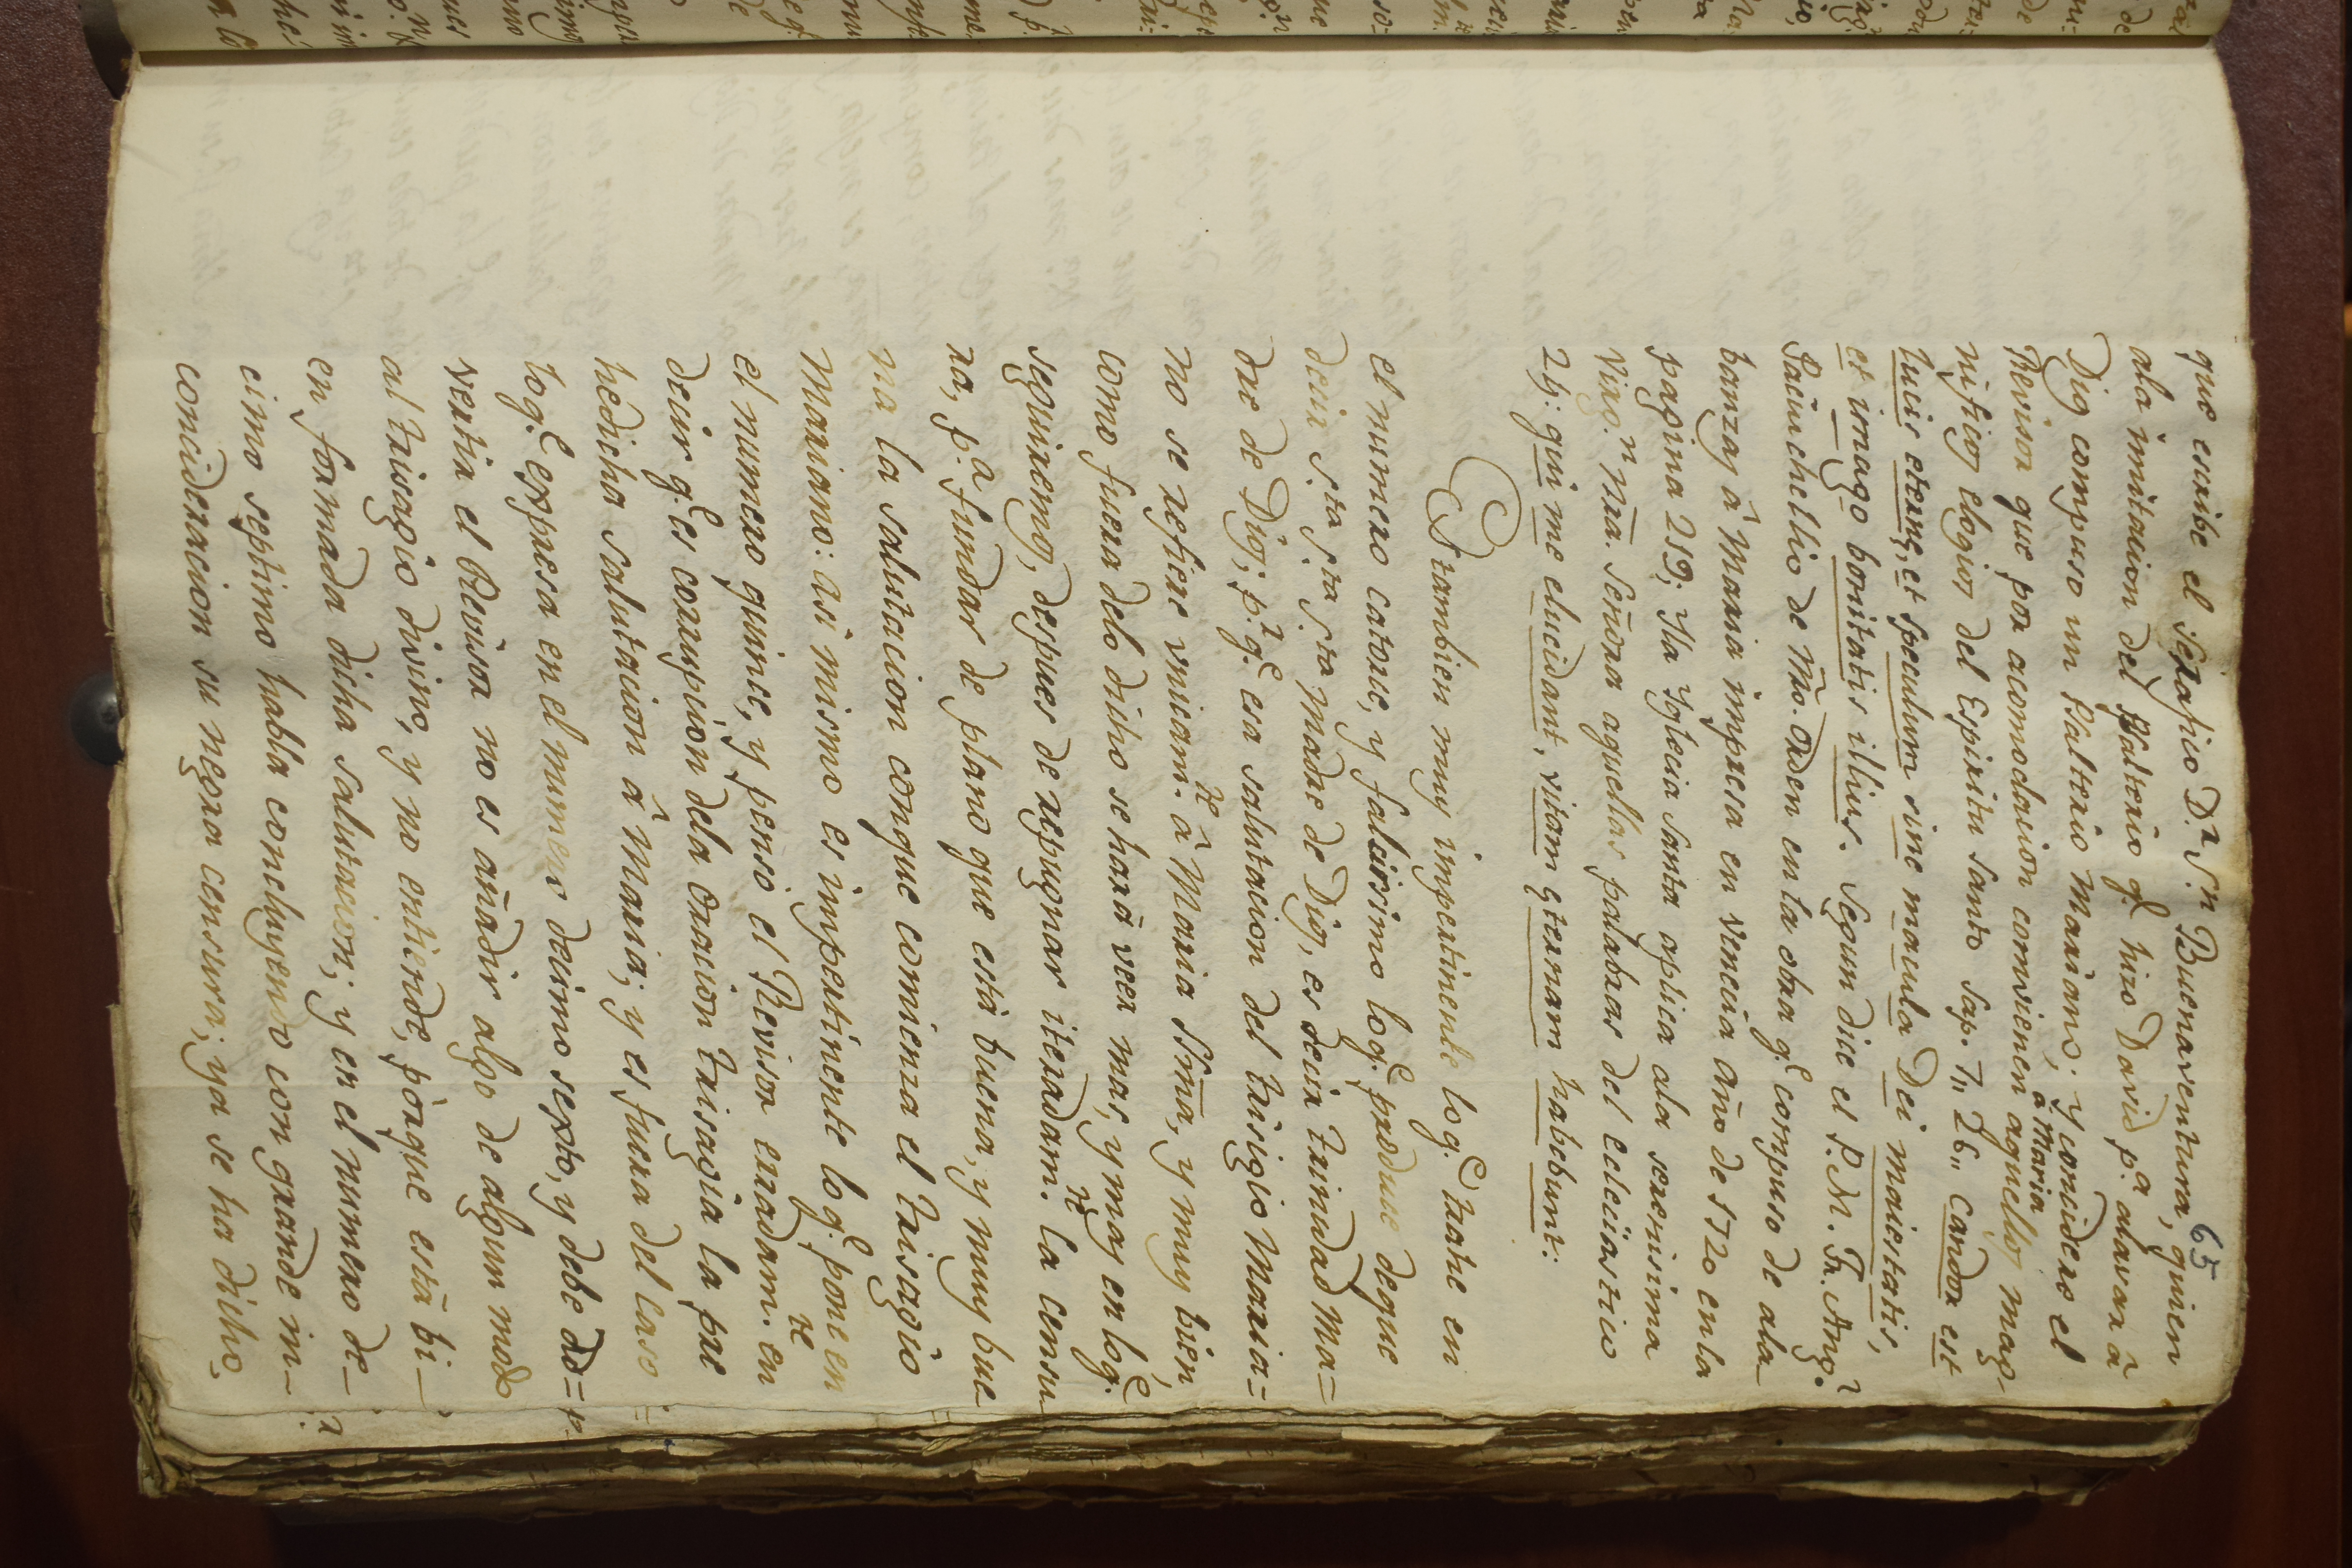 65
que escribe el Serafico D.r S.n Buenaventura, quien
ala imitacion del Psalterio q.e hizo David p.a alavar â
Dios compuso un Psalterio Mariano; y considere el
Revisor que por acomodacion convienen â Maria aquellos mag-
nificos elogios del Espiritu Santo Sap. 7,, 26,, Candor est
lucis eternę, et speculum sine macula Dei maiestatis,
et imago bonitatis illius. Segun dice el P. M. Fr. Ang.l
Paciuchellio de Mro. Orden en la obra q.e compuso de ala-
banzas â Maria impresa en Venecia año de 1720 en la
pagina 219; Ila Yglecia Santa aplica ala serenisima
Virg.n nra. Señora aquellas palabras del ecleciastico
24: qui me elucidant, vitam ęternam habebunt:
Stambien muy impertinente loq.e trahe en
el numero catorce, y falcisimo loq.e produce deque
decir S.ta S.ta S.ta Madre de Dios, es decir Trinidad Ma=
dre de Dios; p.r q.e esa salutacion del trisigio Maria=
no se refiere unicam.te â Maria Sma, y muy bien,
como fuera delo dicho se harâ veer mas, y mas en loq.e
seguiremos, despues de repugnar iteradam.te la censu-
ra, p.a fundar de plano que està buena, y muy bue-
na la salutacion conque comienza el trisagio
Mariano: asi mismo es impertinente loq.e pone en
el numero quince, y penso el Revisor erradam.te en
decir q.e es corrupcion dela oracion trisagia la pre
hedicha salutacion â Maria; y es fuera del caso
loq.e expresa en el numero decimo sexto, y debe ad=
vertir el Revisor no es añadir algo de algun modo
al trisagio divino, y no entiende, porque està bi-
en formada dicha salutacion; y en el numero de-
cimo septimo habla concluyendo con grande in-
concideracion su negra censura; ya se ha dicho,